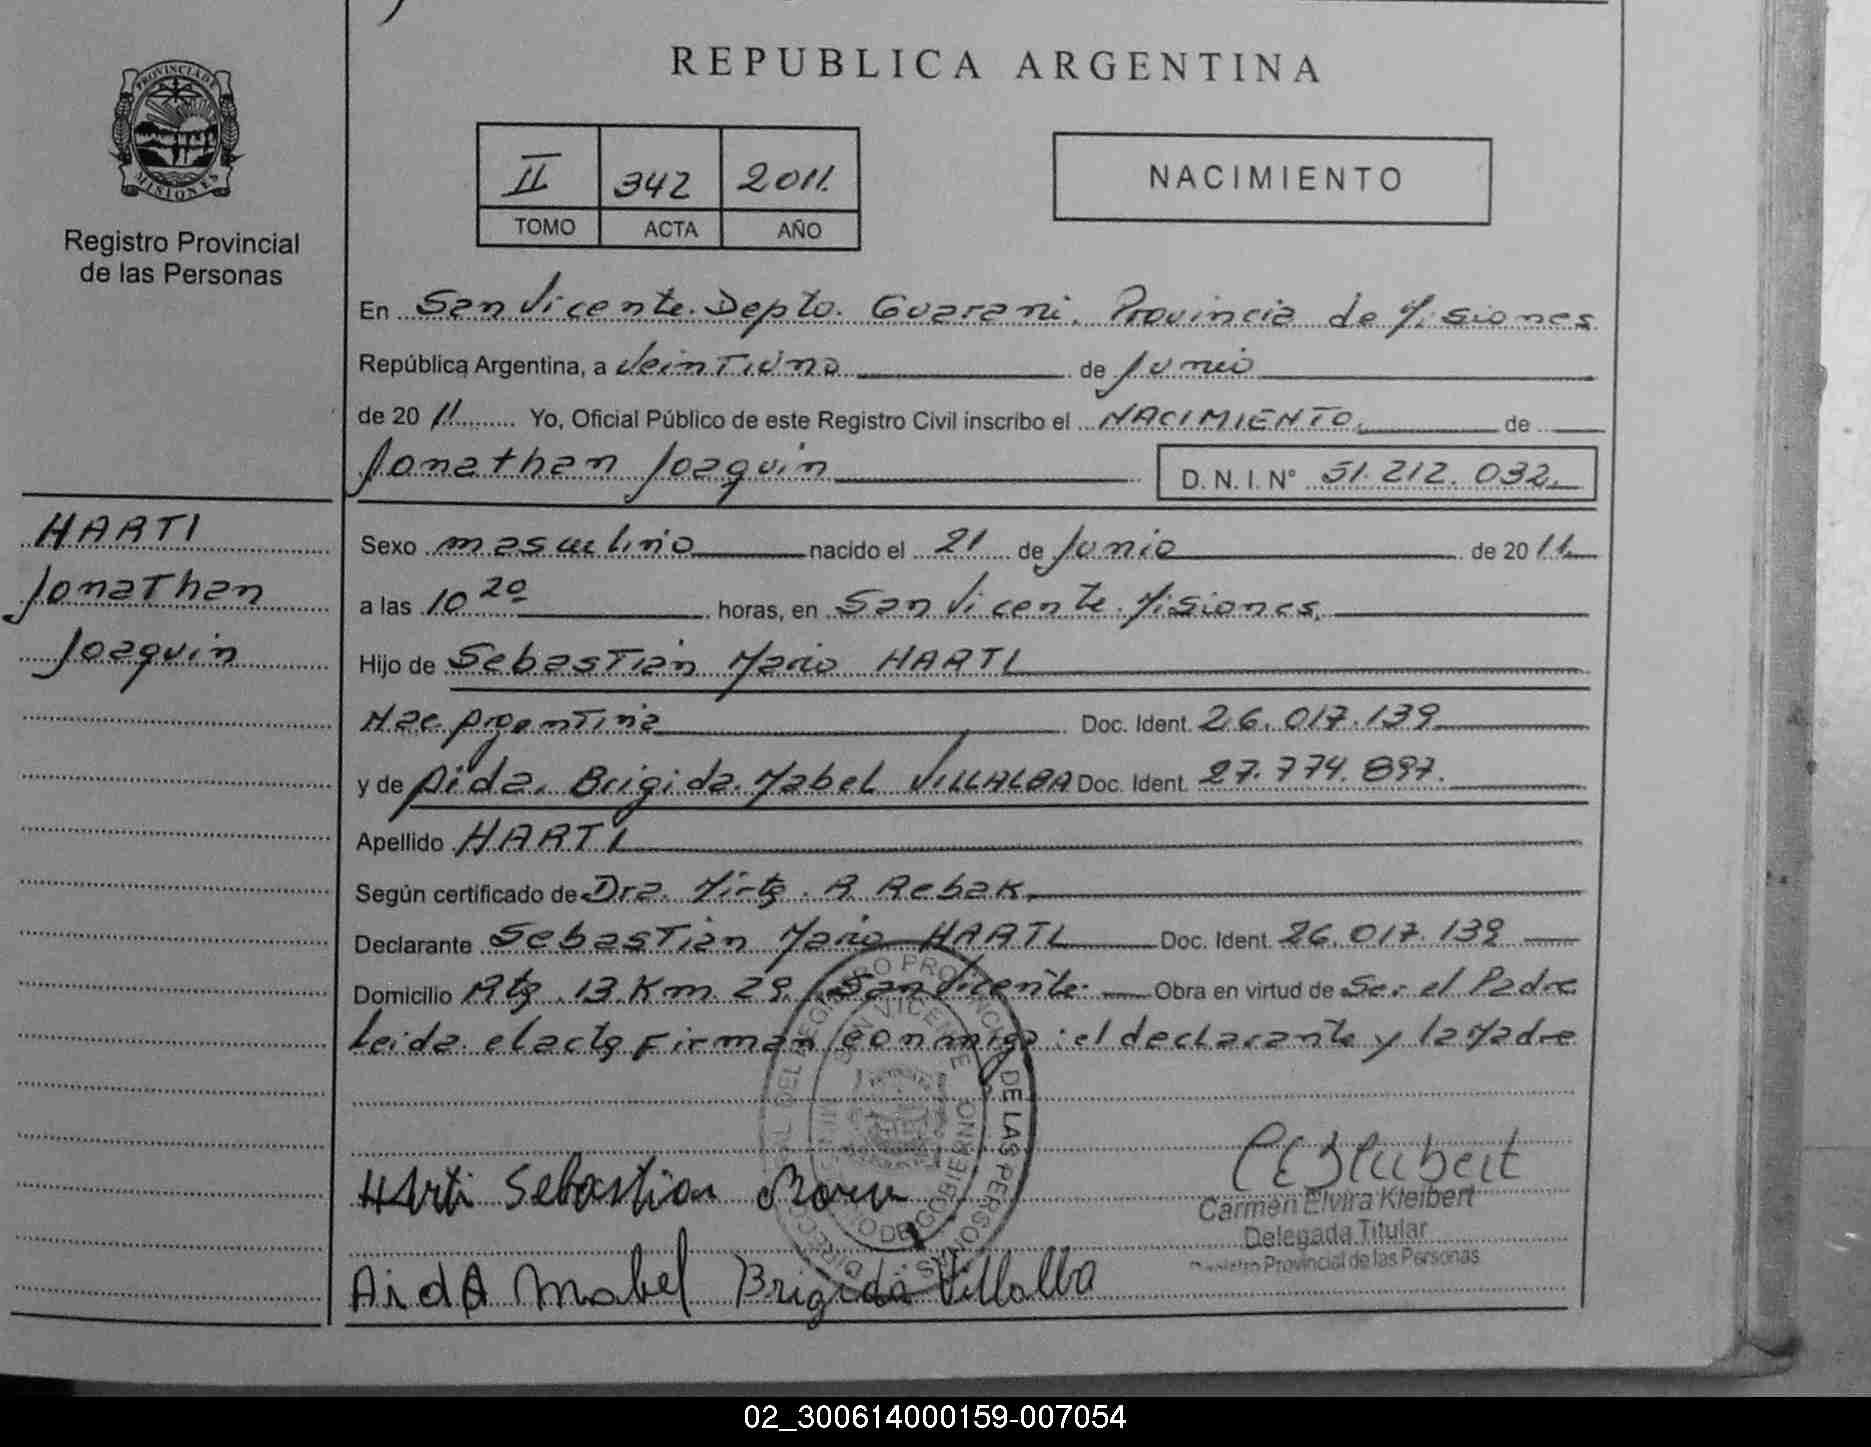 REPUBLICA ARGENTINA
PROVINCIA DE MISIONES
Registro Provincial
de las Personas
II 342 2011.
TOMO ACTA AÑO
NACIMIENTO
En San Vicente. Depto. Guarani. Provincia de Misiones
República Argentina, a Veintiuno de Junio
de 20 11 Yo, Oficial Público de este Registro Civil inscribo el NACIMIENTO. de
Jonathan Joaquin D. N. I. N° 51.212.032.
HARTL
Jonathan
Joaquin
Sexo masculino nacido el 21 de Junio de 20 11
a las 10 20 horas, en San Vicente. Misiones.
Hijo de Sebastián Mario HARTL
Nac. Argentina Doc. Ident. 26.017.139
y de Aida. Brigida. Mabel VILLALBA Doc. Ident. 27.774.897.
Apellido HARTL
Según certificado de Dra. Mirta. R. Rebak.
Declarante Sebastián Mario HARTL Doc. Ident. 26.017.139
Domicilio Rta. 13. Km. 29. San Vicente. Obra en virtud de Ser el Padre
Leida el acta Firman conmigo: el declarante y la Madre
DIRECCION DEL REGISTRO PROVINCIAL DE LAS PERSONAS
SAN VICENTE
DE GOBIERNO
Harti Sebastian
Carmen Elvira Kleibert
Delegada Titular
Registro Provincial de las Personas
AidA Mabel Brigida Villalba
02_300614000159-007054